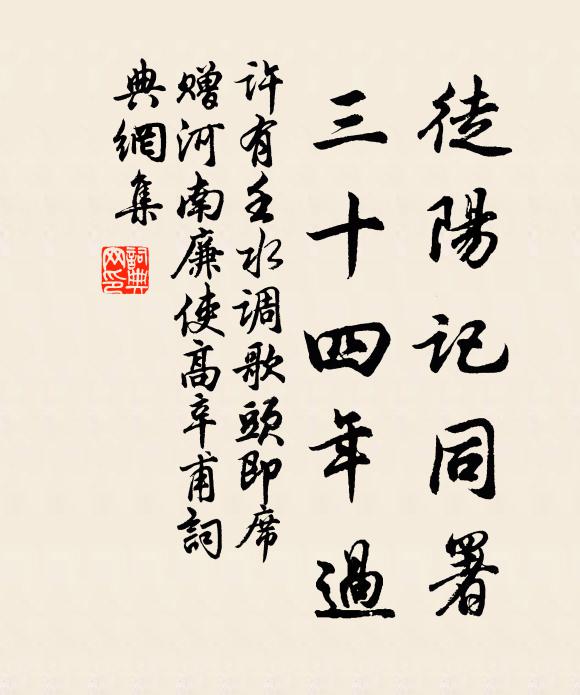 徒陽記同署
三十四年過
許有壬水调歌頭即席
贈河南廉使高辛甫詞
典網集
詞典
网印